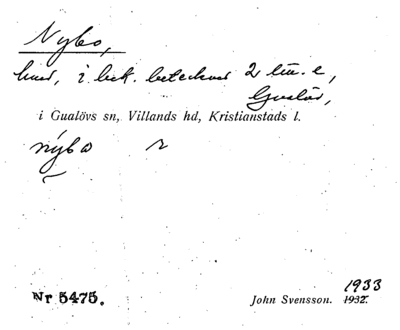 Nybo,
hus, i bek. betecknat 2 tu. e,
Gualöv,
i Gualövs sn, Villands hd, Kristianstads l.
nýbo r
Nr 5475.
1933
John Svensson. 1932.